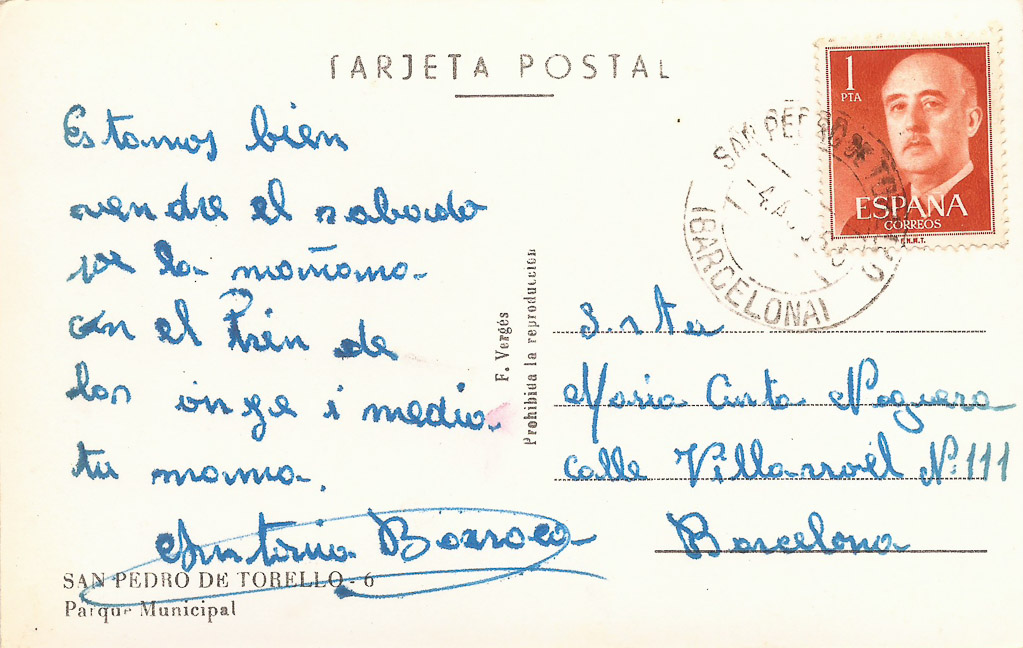 TARJETA POSTAL
Estamos bien
vendre el sabado
por la mañana
con el Tren de
las onze i media
tu mama.
Antonia Barroca
SAN PEDRO DE TORELLO - 6
Parque Municipal
F. Vergés
Prohibida la reproducción
1
PTA
ESPAÑA
CORREOS
F.N.M.T.
SAN PEDRO DE
(BARCELONA)
Srta
Maria Cinta Noguera
calle Villarroel Nº 111
Barcelona